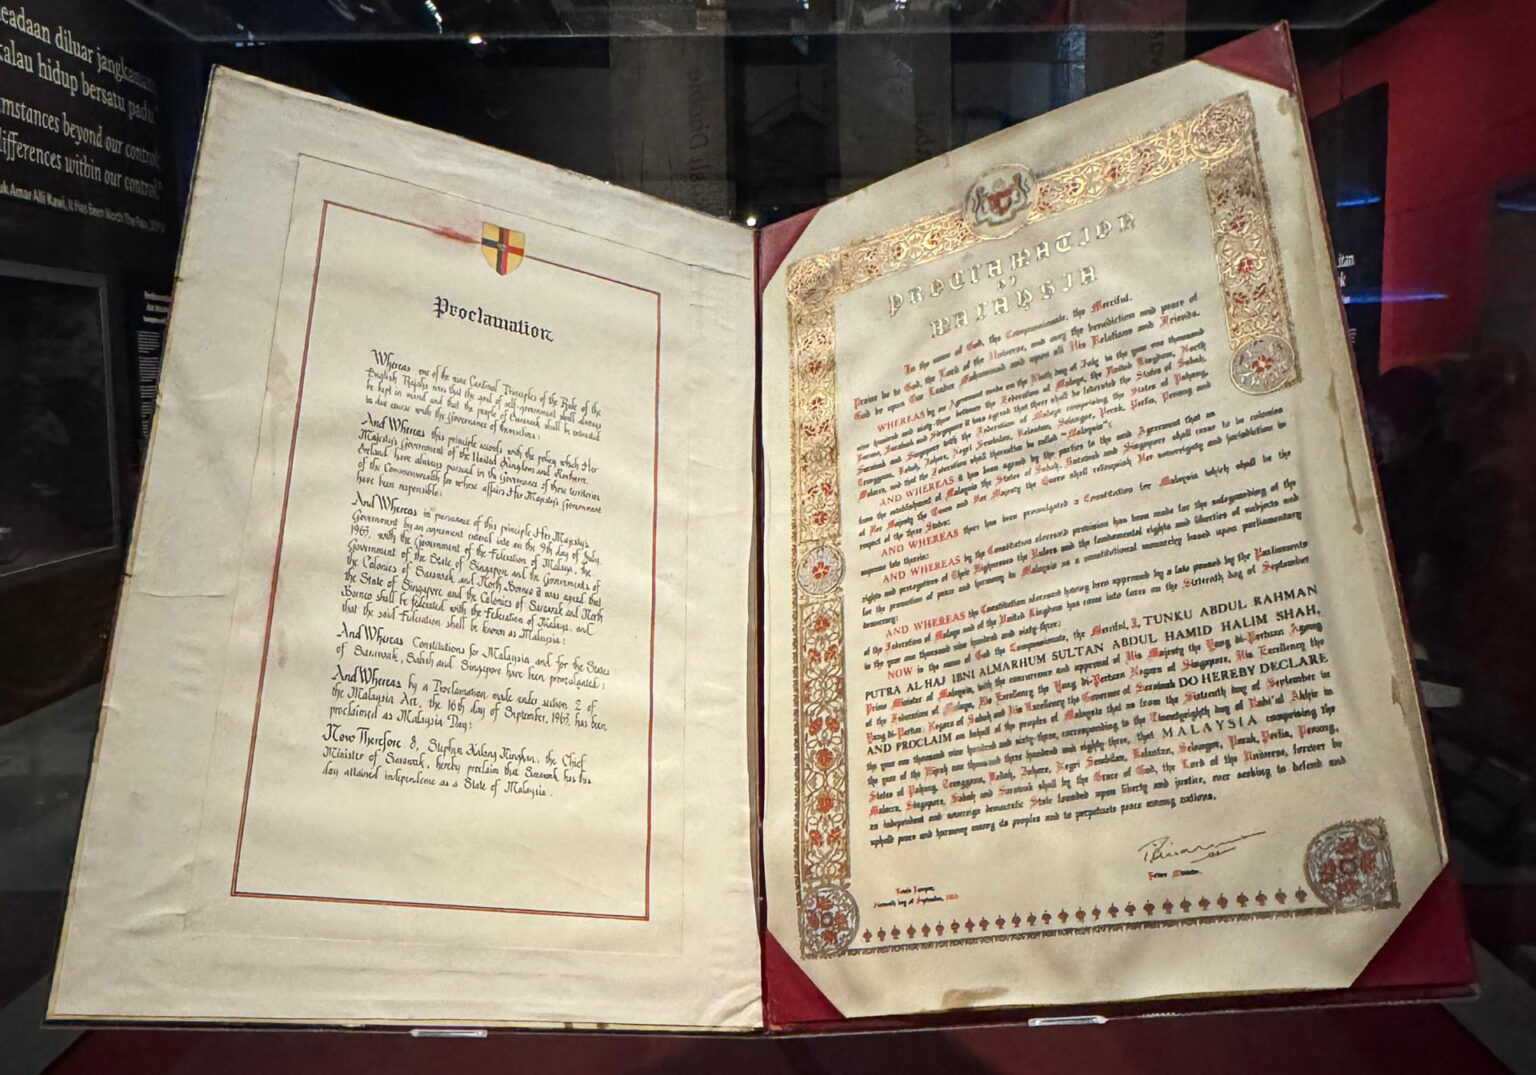 eadaan diluar jangkauan
kalau hidup bersatu padu."
mstances beyond our control
differences within our control."
uk Amar Alli Kawi, It Has Been Worth The Pain, 2019
Proclamation
Whereas one of the nine Cardinal Principles of the Rule of the
English Rajahs was that the goal of self-government shall always
be kept in mind and that the people of Sarawak shall be entrusted
in due course with the Governance of themselves;
And Whereas this principle accords with the policy which Her
Majesty's Government of the United Kingdom and Northern
Ireland have always pursued in the Governance of those territories
of the Commonwealth for whose affairs Her Majesty's Government
have been responsible;
And Whereas in pursuance of this principle Her Majesty's
Government by an agreement entered into on the 9th day of July,
1963, with the Government of the Federation of Malaya, the
Government of the State of Singapore and the Governments of
the Colonies of Sarawak and North Borneo it was agreed that
the State of Singapore and the Colonies of Sarawak and North
Borneo shall be federated with the Federation of Malaya, and
that the said Federation shall be known as Malaysia;
And Whereas Constitutions for Malaysia and for the States
of Sarawak, Sabah and Singapore have been promulgated;
And Whereas by a Proclamation made under section 2 of
the Malaysia Act, the 16th day of September, 1963, has been
proclaimed as Malaysia Day;
Now Therefore I, Stephen Kalong Ningkan, the Chief
Minister of Sarawak, hereby proclaim that Sarawak has this
day attained independence as a State of Malaysia.
PROCLAMATION
OF
MALAYSIA
In the name of God, the Compassionate, the Merciful.
Praise be to God, the Lord of the Universe, and may the benediction and peace of
God be upon Our Leader Muhammad and upon all His Relations and Friends.
WHEREAS by an Agreement made on the Ninth day of July in the year one thousand
nine hundred and sixty-three between the Federation of Malaya, the United Kingdom, North
Borneo, Sarawak and Singapore it was agreed that there shall be federated the States of Sabah,
Sarawak and Singapore with the Federation of Malaya comprising the States of Pahang,
Trengganu, Kedah, Johore, Negri Sembilan, Kelantan, Selangor, Perak, Perlis, Penang and
Malacca, and that the Federation shall thereafter be called "Malaysia":
AND WHEREAS it has been agreed by the parties to the said Agreement that as
from the establishment of Malaysia the States of Sabah, Sarawak and Singapore shall cease to be colonies
of Her Majesty the Queen and Her Majesty the Queen shall relinquish Her sovereignty and jurisdiction in
respect of the three States:
AND WHEREAS there has been promulgated a Constitution for Malaysia which shall be the
supreme law therein:
AND WHEREAS by the Constitution aforesaid provision has been made for the safeguarding of the
rights and prerogatives of Their Highnesses the Rulers and the fundamental rights and liberties of subjects and
for the promotion of peace and harmony in Malaysia as a constitutional monarchy based upon parliamentary
democracy:
AND WHEREAS the Constitution aforesaid having been approved by a law passed by the Parliaments
of the Federation of Malaya and of the United Kingdom has come into force on the Sixteenth day of September
in the year one thousand nine hundred and sixty-three:
NOW in the name of God the Compassionate, the Merciful, I, TUNKU ABDUL RAHMAN
PUTRA AL-HAJ IBNI ALMARHUM SULTAN ABDUL HAMID HALIM SHAH,
Prime Minister of Malaysia, with the concurrence and approval of His Majesty the Yang di-Pertuan Agong
of the Federation of Malaya, His Excellency the Yang di-Pertuan Negara of Singapore, His Excellency the
Yang di-Pertua Negara of Sabah and His Excellency the Governor of Sarawak DO HEREBY DECLARE
AND PROCLAIM on behalf of the peoples of Malaysia that as from the Sixteenth day of September in
the year one thousand nine hundred and sixty three, corresponding to the Twentyeighth day of Rabi'al Akhir in
the year of the Hijrah one thousand three hundred and eighty three, that MALAYSIA comprising the
States of Pahang, Trengganu, Kedah, Johore, Negri Sembilan, Kelantan, Selangor, Perak, Perlis, Penang,
Malacca, Singapore, Sabah and Sarawak shall by the Grace of God, the Lord of the Universe, forever be
an independent and sovereign democratic State founded upon liberty and justice, ever seeking to defend and
uphold peace and harmony among its peoples and to perpetuate peace among nations.
Prime Minister.
Kuala Lumpur,
Sixteenth day of September, 1963.